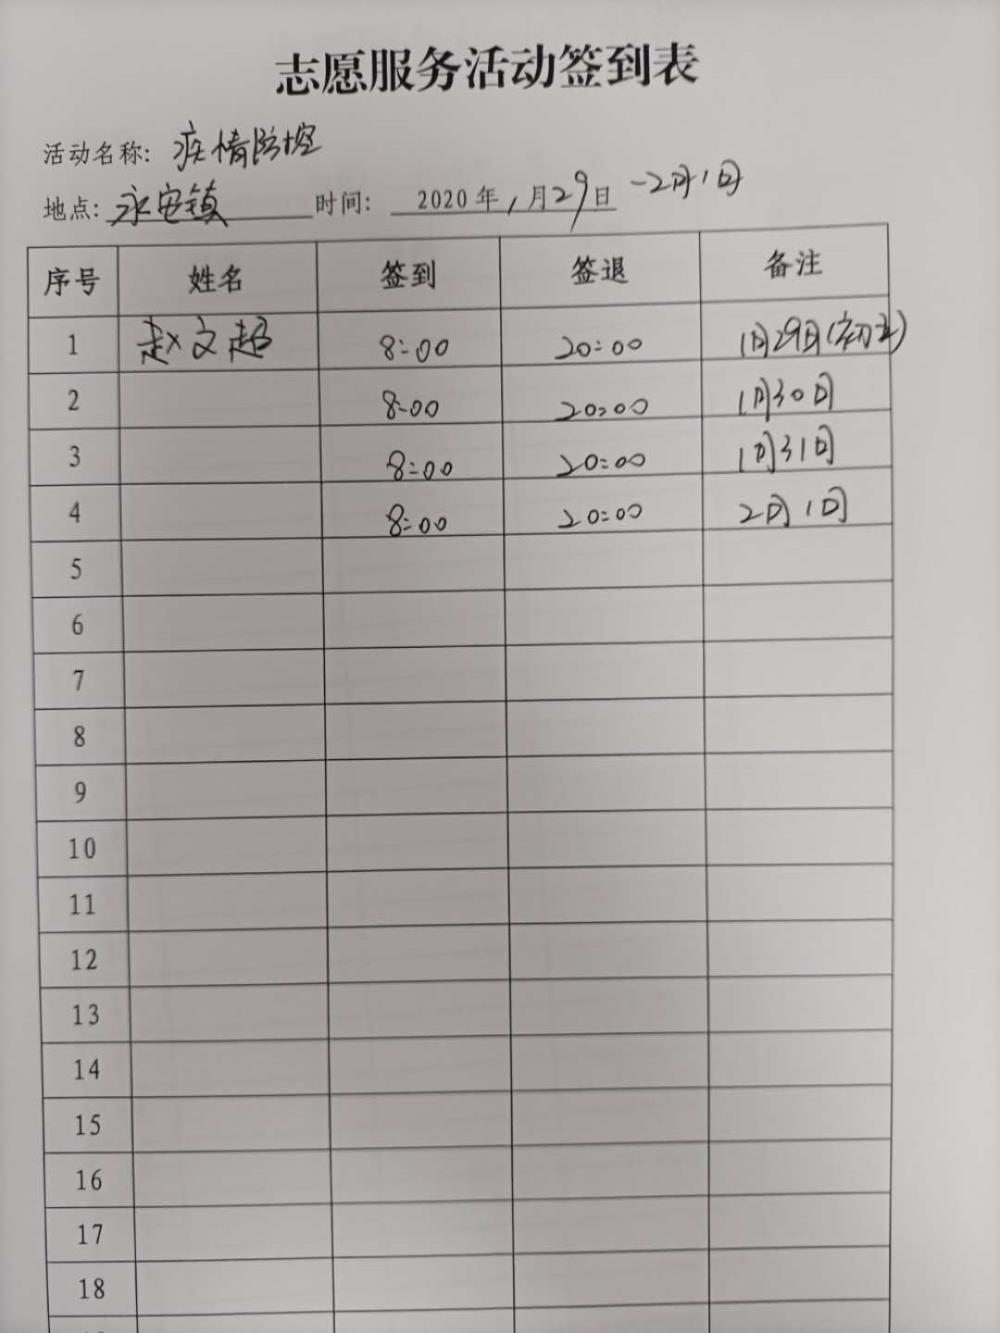 志愿服务活动签到表
活动名称: 疫情防控
地点: 永安镇 时间: 2020年1月29日-2月1日
序号 姓名 签到 签退 备注
1 赵文超 8:00 20:00 1月29日(初五)
2 8:00 20:00 1月30日
3 8:00 20:00 1月31日
4 8:00 20:00 2月1日
5
6
7
8
9
10
11
12
13
14
15
16
17
18